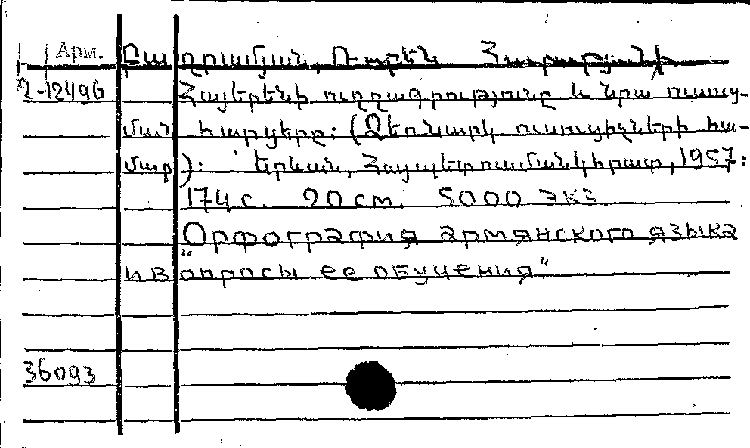 Арм.
2-12496
Հայերենի ուղղագրությունը և նրա ուսուց-
ման հարցերը: (Ձեռնարկ ուսուցիչների հա-
մար): Երևան, Հայպետուսմանկհրատ, 1957:
174 с. 20 см. 5000 экз.
"Орфография армянского языка
и вопросы ее обучения"
36093